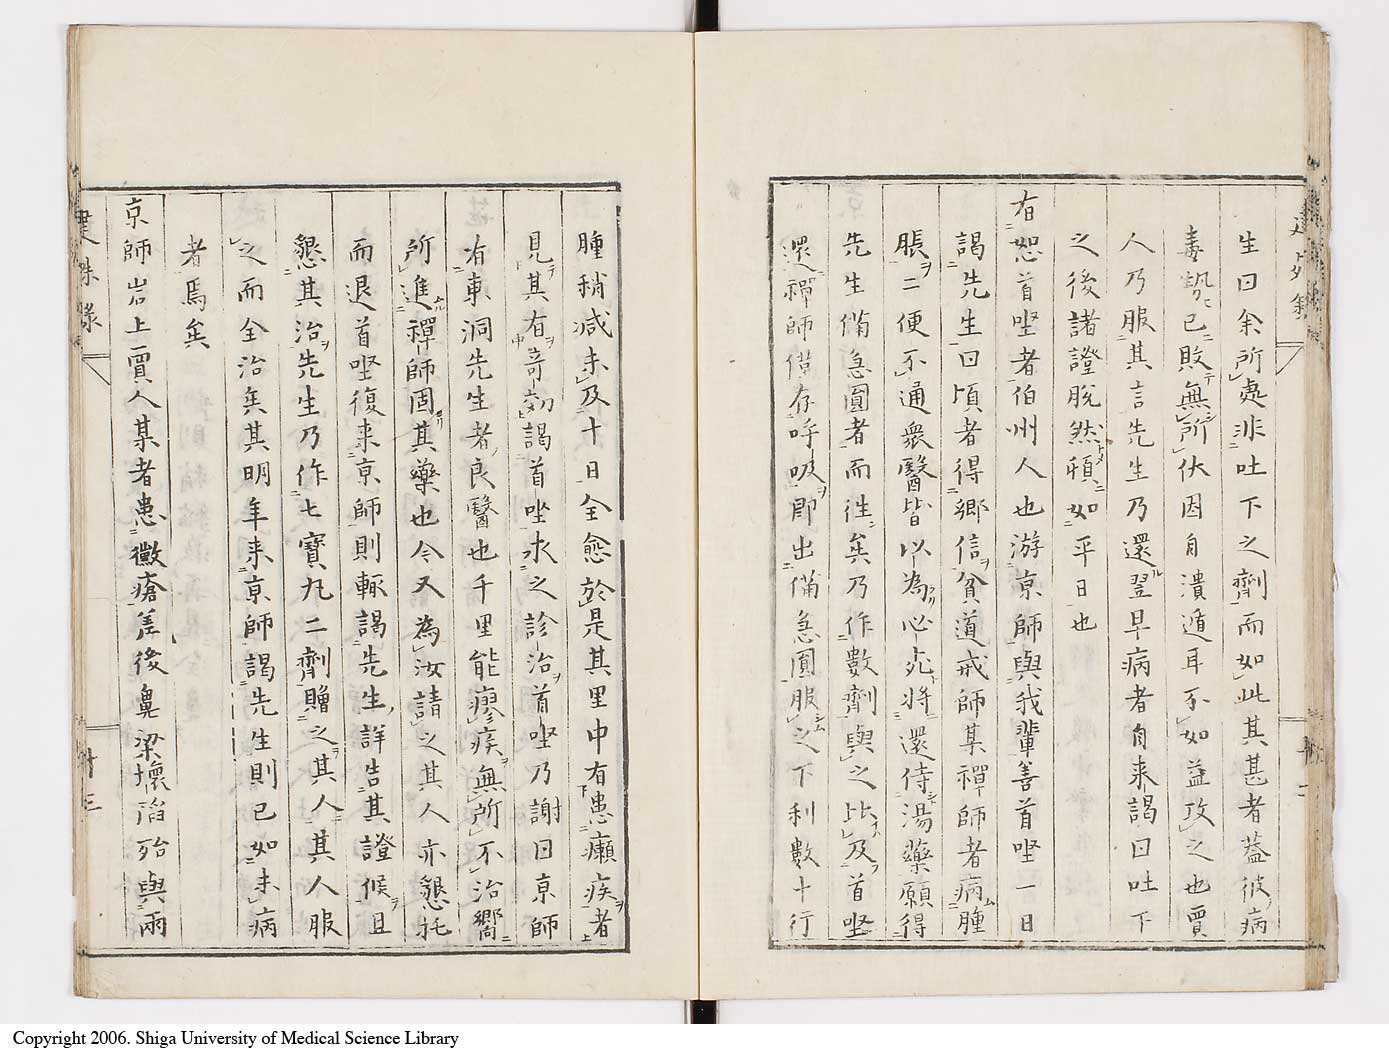 生曰余所處非吐下之劑而如此其甚者蓋彼病
毒勢已敗無所伏因自潰遁耳不如益攻之也賈
人乃服其言先生乃還翌早病者自来謁曰吐下
之後諸證脫然頓如平日也
有恕首坐者伯州人也游京師與我輩善首坐一日
謁先生曰頃者得鄉信貧道戒師某禪師者病腫
脹二便不通衆醫皆以為必死將還侍湯藥願得
先生備急圓者而徃矣乃作數劑與之比及首坐
還禪師僅存呼吸即出備急圓服之下利數十行
腫稍減未及十日全愈於是其里中有患癩疾者
見其有奇効謁首坐求之診治首坐乃謝曰京師
有東洞先生者良醫也千里能瘳疾無所不治嚮
所進禪師固其藥也今又為汝請之其人亦懇托
而退首坐復来京師則輙謁先生詳告其證候且
懇其治先生乃作七寶丸二劑贈之其人其人服
之而全治矣其明年来京師謁先生則已如未病
者焉矣
京師岩上賈人某者患黴瘡差後鼻梁壞陷殆與兩
建殊録
廿三
Copyright 2006. Shiga University of Medical Science Library